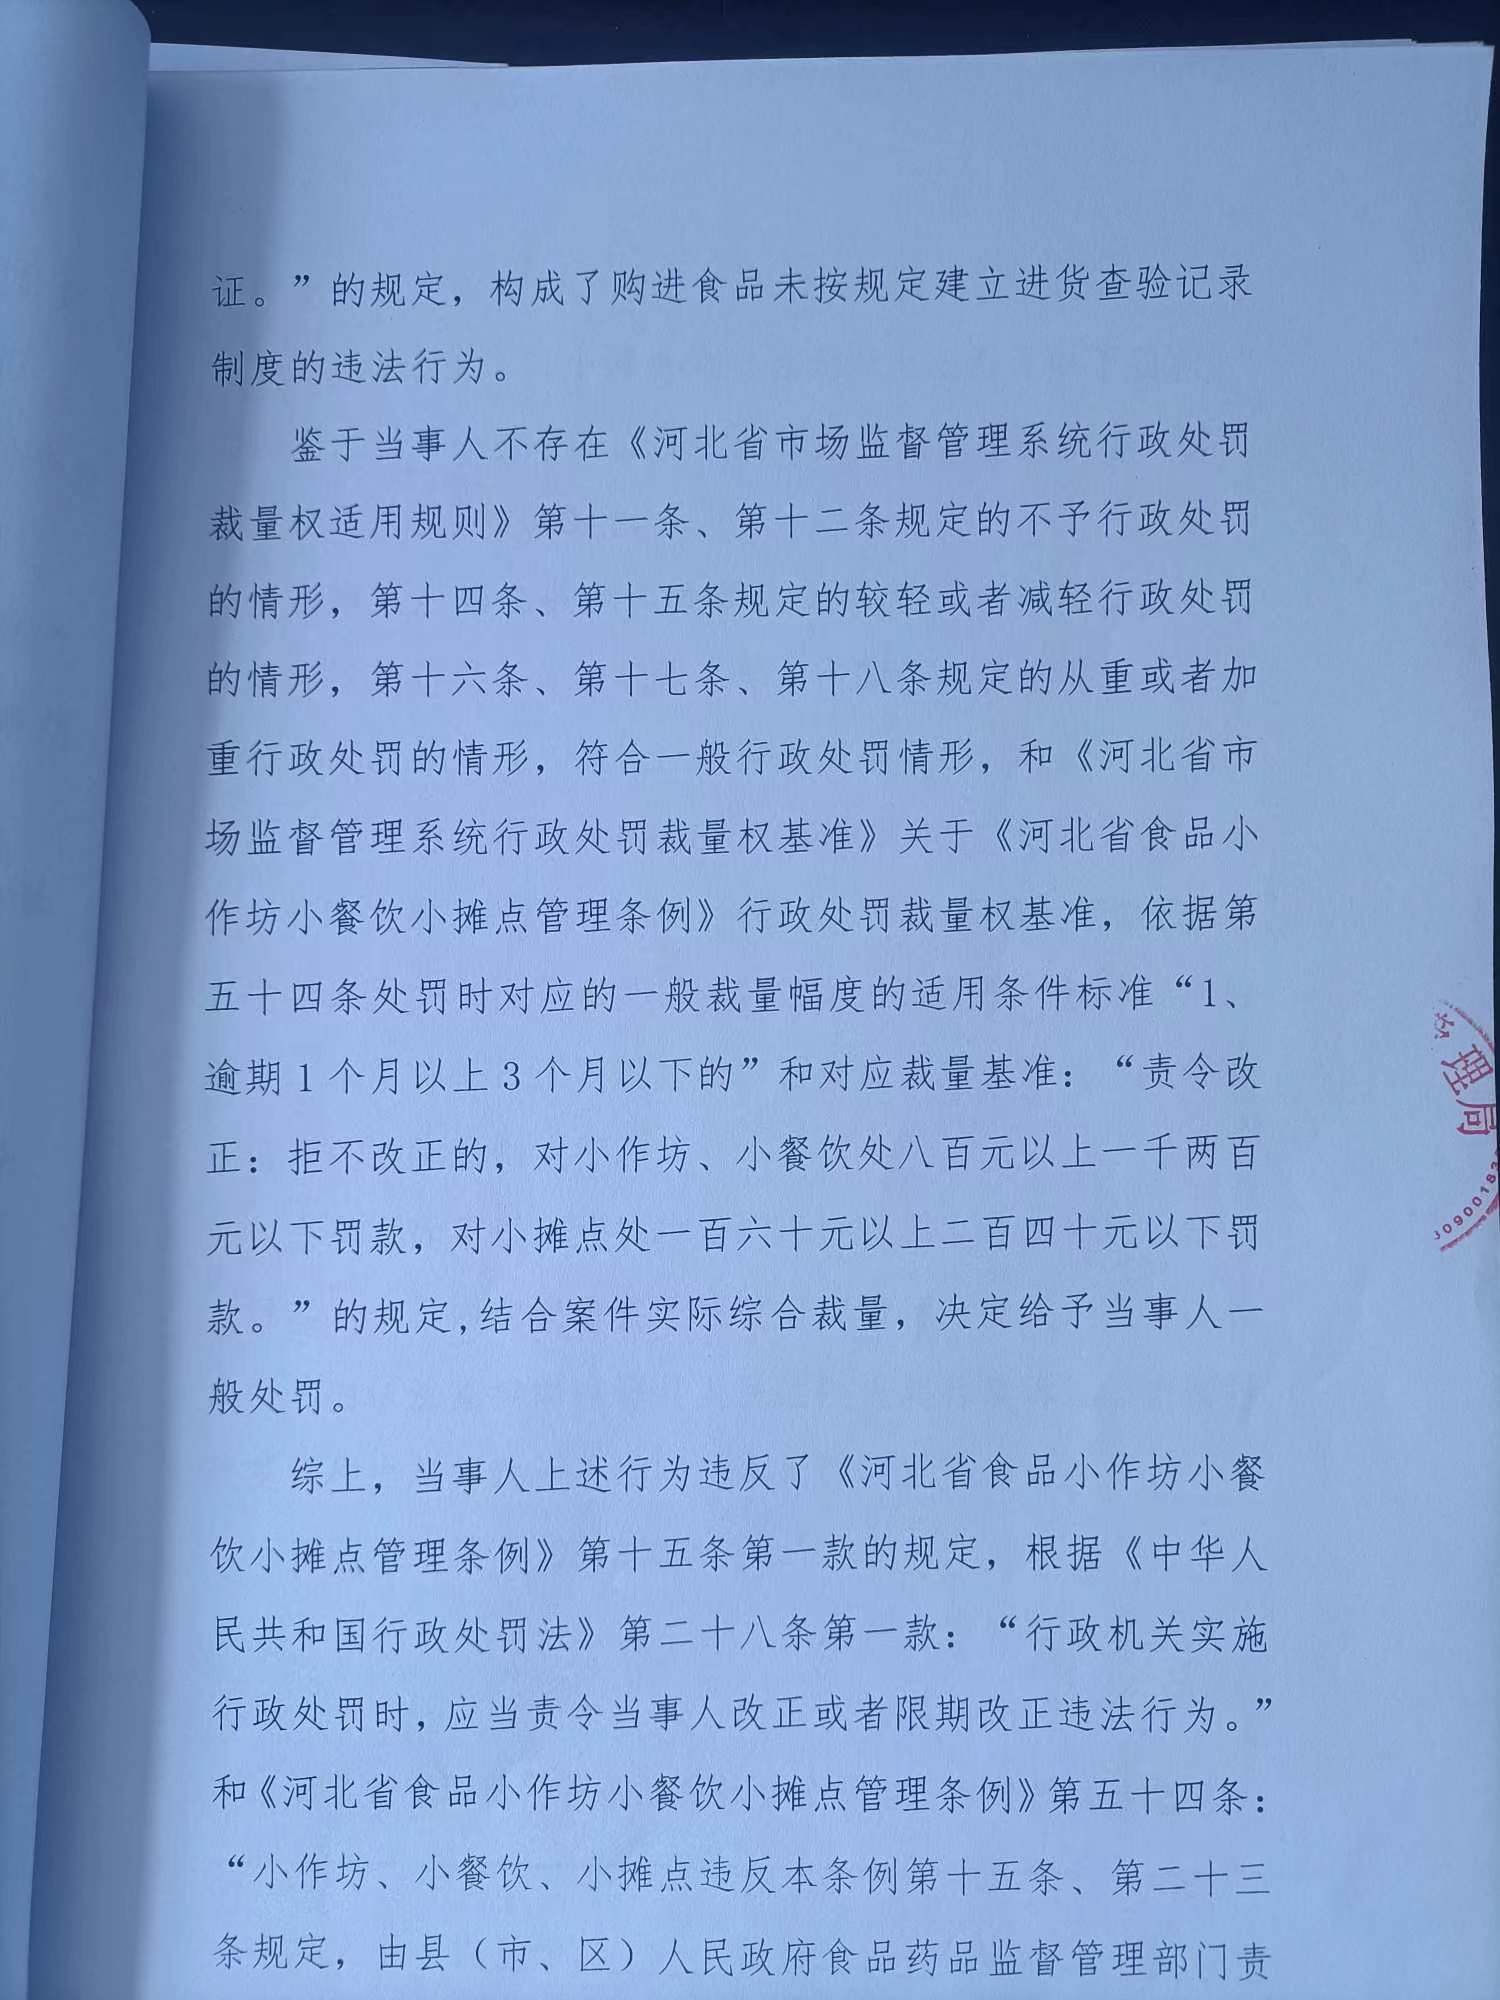 证。”的规定，构成了购进食品未按规定建立进货查验记录
制度的违法行为。
鉴于当事人不存在《河北省市场监督管理系统行政处罚
裁量权适用规则》第十一条、第十二条规定的不予行政处罚
的情形，第十四条、第十五条规定的较轻或者减轻行政处罚
的情形，第十六条、第十七条、第十八条规定的从重或者加
重行政处罚的情形，符合一般行政处罚情形，和《河北省市
场监督管理系统行政处罚裁量权基准》关于《河北省食品小
作坊小餐饮小摊点管理条例》行政处罚裁量权基准，依据第
五十四条处罚时对应的一般裁量幅度的适用条件标准“1、
逾期1个月以上3个月以下的”和对应裁量基准：“责令改
正：拒不改正的，对小作坊、小餐饮处八百元以上一千两百
元以下罚款，对小摊点处一百六十元以上二百四十元以下罚
款。”的规定,结合案件实际综合裁量，决定给予当事人一
般处罚。
综上，当事人上述行为违反了《河北省食品小作坊小餐
饮小摊点管理条例》第十五条第一款的规定，根据《中华人
民共和国行政处罚法》第二十八条第一款：“行政机关实施
行政处罚时，应当责令当事人改正或者限期改正违法行为。”
和《河北省食品小作坊小餐饮小摊点管理条例》第五十四条：
“小作坊、小餐饮、小摊点违反本条例第十五条、第二十三
条规定，由县（市、区）人民政府食品药品监督管理部门责
理局
0900183